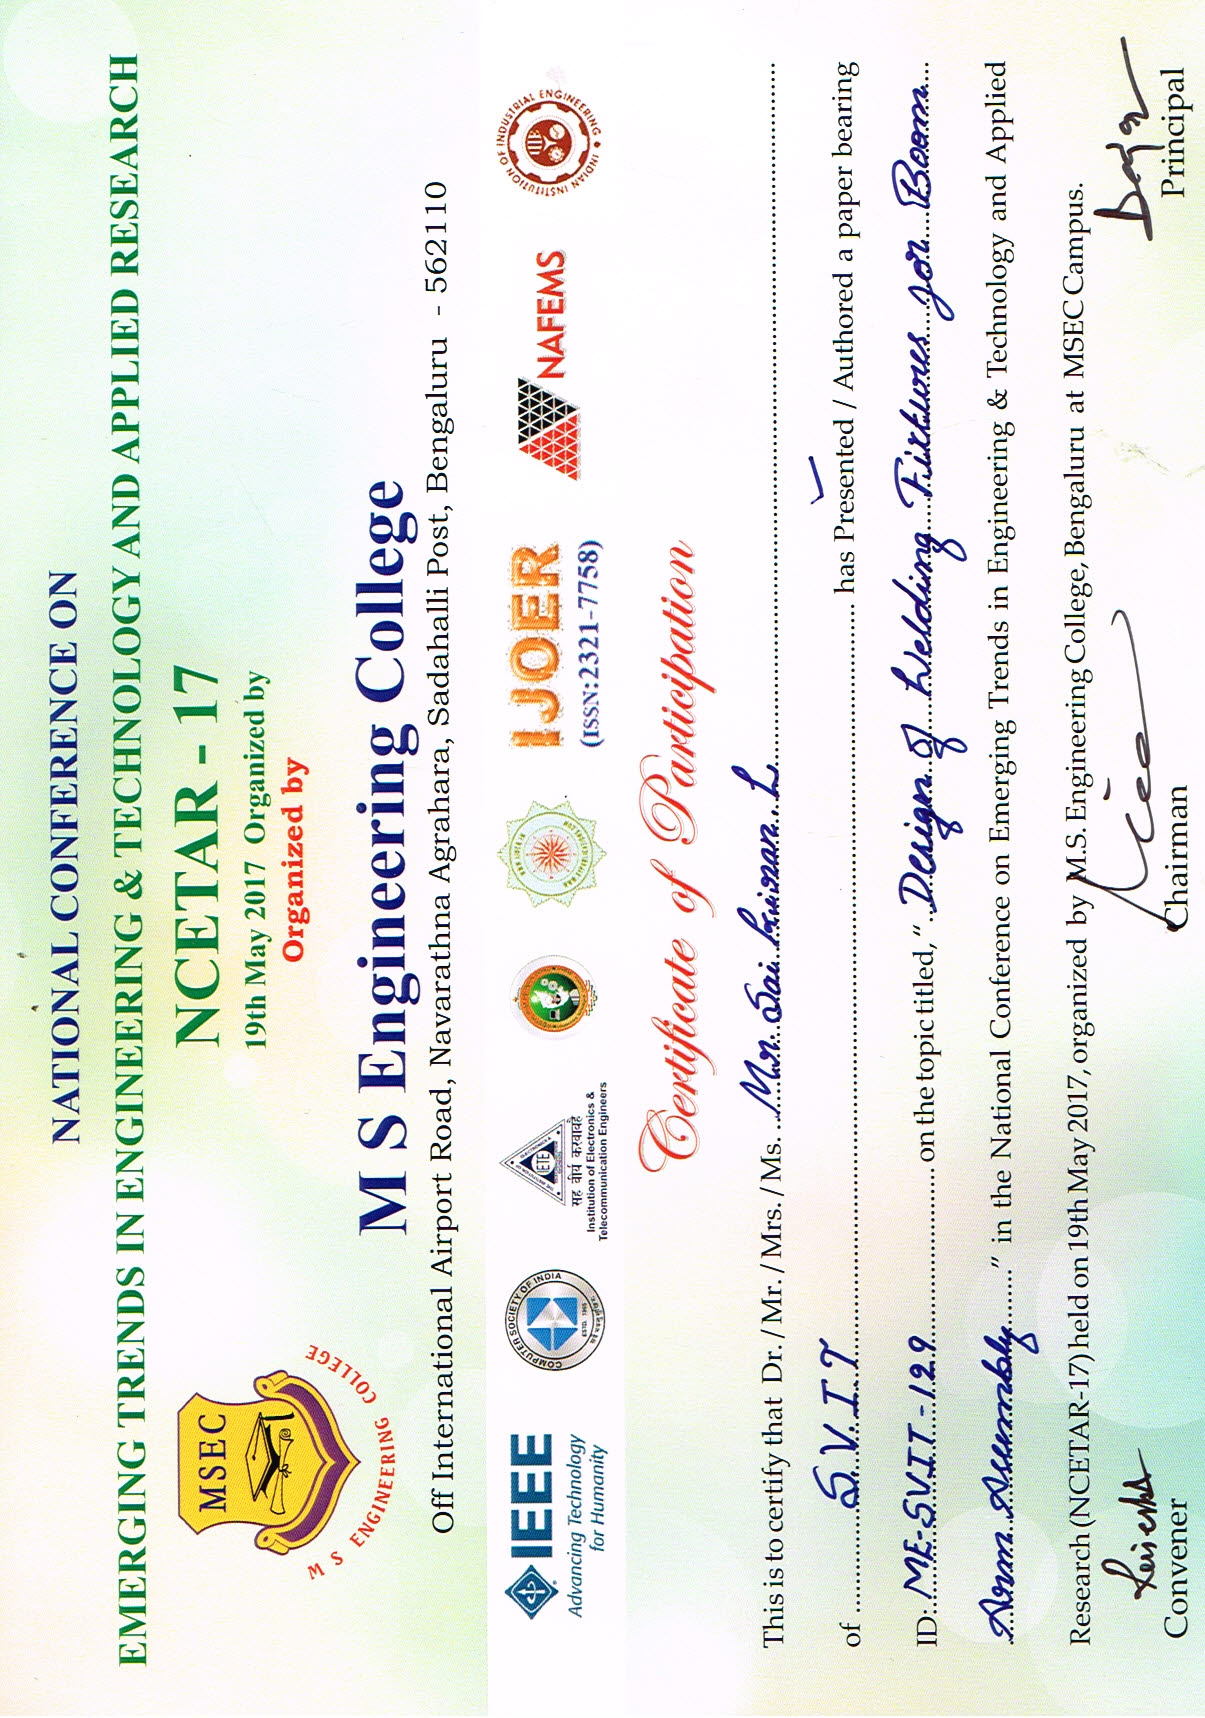 NATIONAL CONFERENCE ON
EMERGING TRENDS IN ENGINEERING & TECHNOLOGY AND APPLIED RESEARCH
NCETAR - 17
19th May 2017 Organized by
Organized by
MSEC
M S ENGINEERING COLLEGE
M S Engineering College
Off International Airport Road, Navarathna Agrahara, Sadahalli Post, Bengaluru - 562110
IEEE
Advancing Technology
for Humanity
COMPUTER SOCIETY OF INDIA
ESTD. 1965
IETE
सह वीर्य करवावहै
Institution of Electronics &
Telecommunication Engineers
IJOER
(ISSN:2321-7758)
NAFEMS
INDIAN INSTITUTION OF INDUSTRIAL ENGINEERING
Certificate of Participation
This is to certify that Dr. / Mr. / Mrs. / Ms. Mr. Sai Kiran L
of S.V.I.T has Presented / Authored a paper bearing
ID: ME-SVIT-129 on the topic titled, “ Design of Welding Fixtures for Boom
Arm Assembly ” in the National Conference on Emerging Trends in Engineering & Technology and Applied
Research (NCETAR-17) held on 19th May 2017, organized by M.S. Engineering College, Bengaluru at MSEC Campus.
Convener
Chairman
Principal